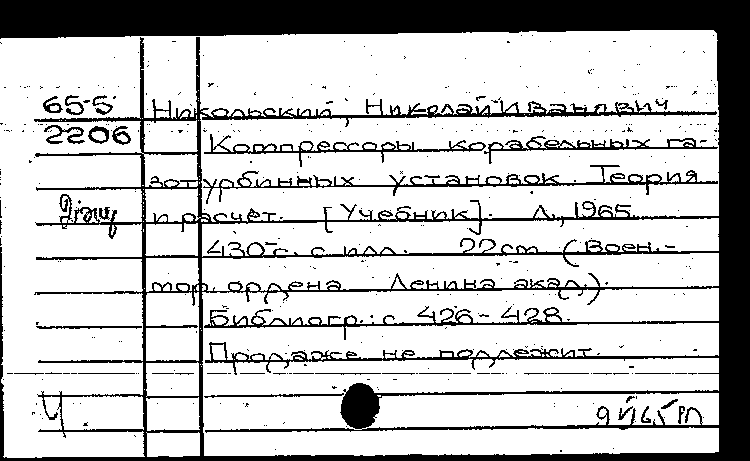 65-5 Никольский, Николай Иванович
2206 Компрессоры корабельных га-
зотурбинных установок. Теория
и расчет. [Учебник]. Л., 1965.
430 с. с илл. 22 см (Воен.-
мор. ордена Ленина акад.).
Библиогр.: с. 426-428.
Продаже не подлежит.
Ч.